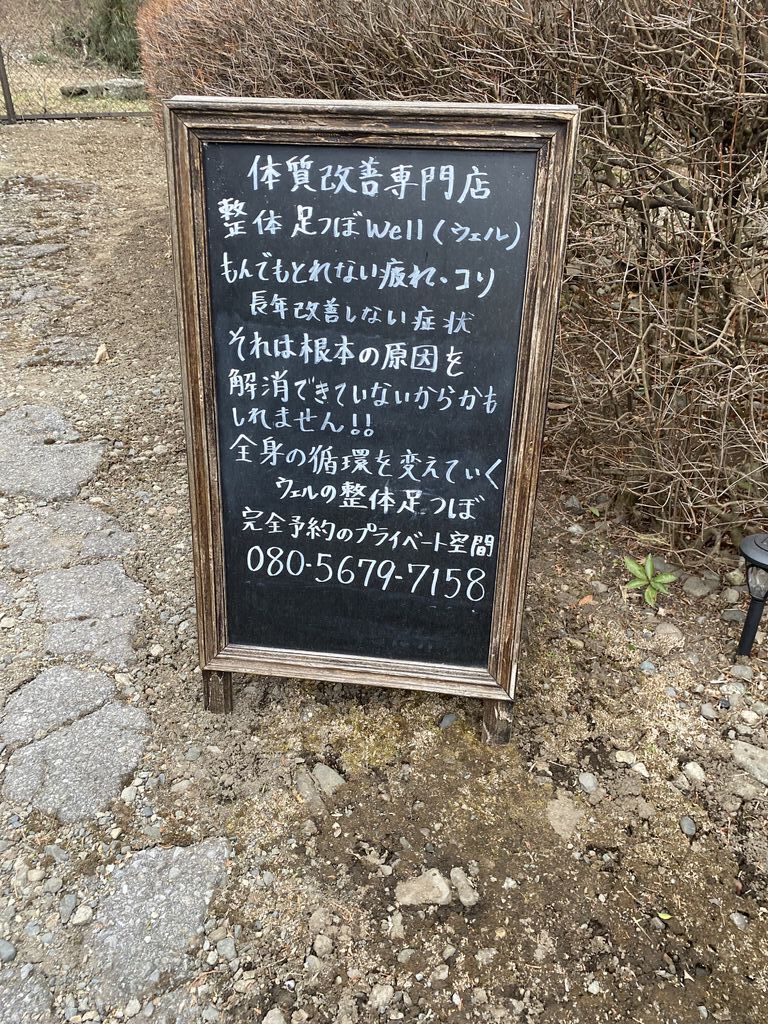 体質改善専門店
整体 足つぼ Well (ウェル)
もんでもとれない疲れ・コリ
長年改善しない症状
それは根本の原因を
解消できていないからかも
しれません!!
全身の循環を変えていく
ウェルの整体足つぼ
完全予約のプライベート空間
080-5679-7158